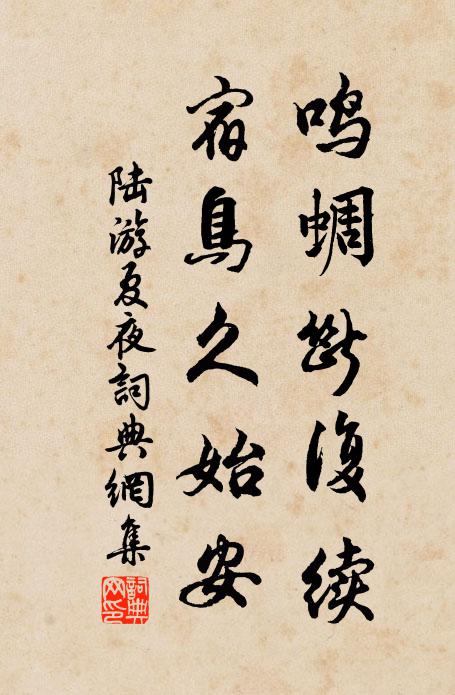 鸣蜩斷復续
宿鳥久始安
陆游夏夜詞典網集
詞典
网印